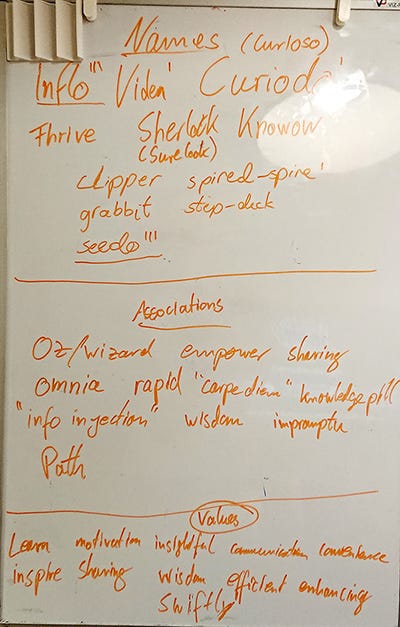 Names (Curioso)
Inflo''' Videa' Curiodo'
Thrive Sherlook Knowow
(Surelook)
clipper spired-spire'
grabbit step-duck
seedo'''
Associations
Oz/wizard empower sharing
omnia rapid "carpediem" knowledge pill
"info injection" wisdom impromptu
Path
Values
Learn motivation insightful communication convenience
inspire sharing wisdom efficient enhancing
swiftly